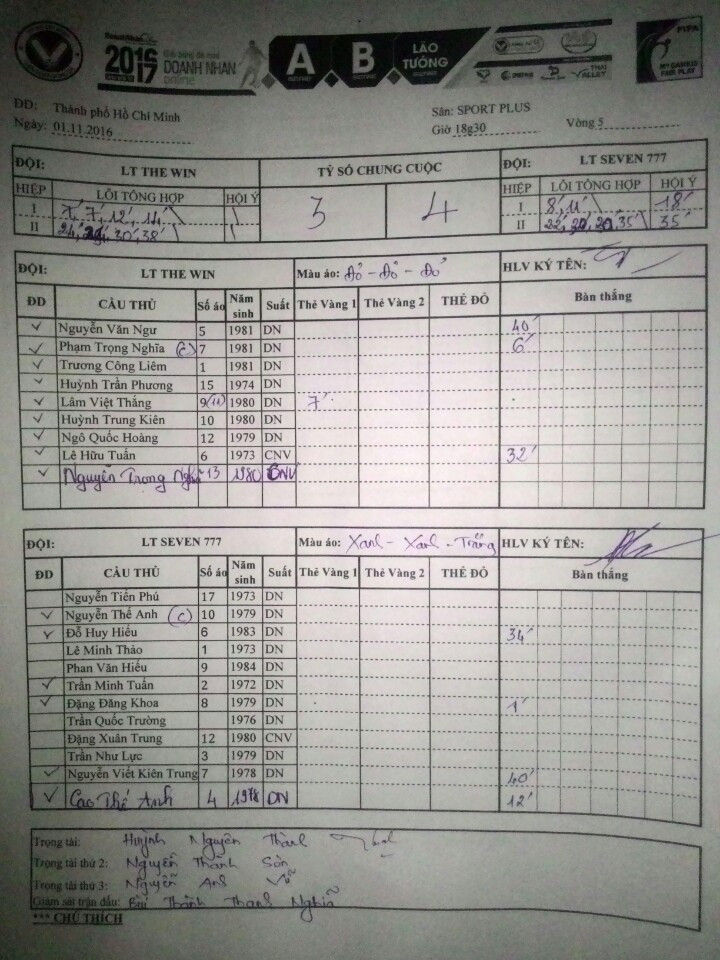 2016 2017 DOANH NHAN online A B LÃO TƯỚNG FIFA MY GAME IS FAIR PLAY
THAI VALLEY
ĐĐ: Thành phố Hồ Chí Minh Sân: SPORT PLUS
Ngày: 01.11.2016 Giờ 18g30 Vòng 5
ĐỘI: LT THE WIN TỶ SỐ CHUNG CUỘC ĐỘI: LT SEVEN 777
HIỆP LỖI TỔNG HỢP HỘI Ý 3 4 HIỆP LỖI TỔNG HỢP HỘI Ý
I 7', 12', 14' I 8', 11' 18'
II 24', 30', 38' II 22', 20', 35' 35'
ĐỘI: LT THE WIN Màu áo: Đỏ - Đỏ - Đỏ HLV KÝ TÊN:
ĐD CẦU THỦ Số áo Năm sinh Suất Thẻ Vàng 1 Thẻ Vàng 2 THẺ ĐỎ Bàn thắng
Nguyễn Văn Ngư 5 1981 DN 40'
Phạm Trọng Nghĩa (c) 7 1981 DN 6'
Trương Công Liêm 1 1981 DN
Huỳnh Trần Phương 15 1974 DN
Lâm Việt Thắng 9(11) 1980 DN 7'
Huỳnh Trung Kiên 10 1980 DN
Ngô Quốc Hoàng 12 1979 DN
Lê Hữu Tuấn 6 1973 CNV 32'
Nguyễn Trọng 13 1980 CNV
ĐỘI: LT SEVEN 777 Màu áo: Xanh - Xanh - Trắng HLV KÝ TÊN:
ĐD CẦU THỦ Số áo Năm sinh Suất Thẻ Vàng 1 Thẻ Vàng 2 THẺ ĐỎ Bàn thắng
Nguyễn Tiến Phú 17 1973 DN
Nguyễn Thế Anh (c) 10 1979 DN
Đỗ Huy Hiếu 6 1983 DN 34'
Lê Minh Thảo 1 1973 DN
Phan Văn Hiếu 9 1984 DN
Trần Minh Tuấn 2 1972 DN
Đặng Đăng Khoa 8 1979 DN 1'
Trần Quốc Trường 1976 DN
Đặng Xuân Trung 12 1980 CNV
Trần Như Lực 3 1979 DN
Nguyễn Viết Kiên Trung 7 1978 DN 40'
Cao Thế Anh 4 1978 DN 12'
Trọng tài: Huỳnh Nguyên Thành
Trọng tài thứ 2: Nguyễn Thành Sơn
Trọng tài thứ 3: Nguyễn Anh Vũ
Giám sát trận đấu: Bùi Thành Thanh Nghĩa
*** CHÚ THÍCH